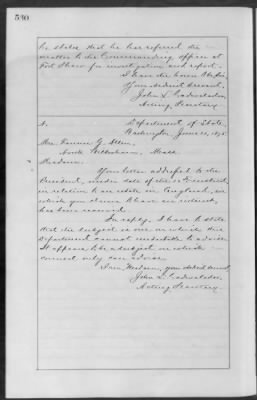 530
he states that he has referred the
matter to the Commanding officer at
Fort Shaw for investigation and report.
I have the honor to be, Sir,
Your obedient servant,
John L. Cadwalader,
Acting Secretary.
Department of State,
Washington, June 1875.
Mrs. Fannie G. Allen,
North Wilbraham, Mass.
Madam:
Your letter addressed to the
President, under date of the instant,
in relation to an estate in England, in
which you claim to have an interest,
has been received.
In reply, I have to state
that the subject is one on which this
Department cannot undertake to advise.
It appears to be a subject on which
counsel only can advise.
I am, Madam, your obedient servant,
John L. Cadwalader,
Acting Secretary.